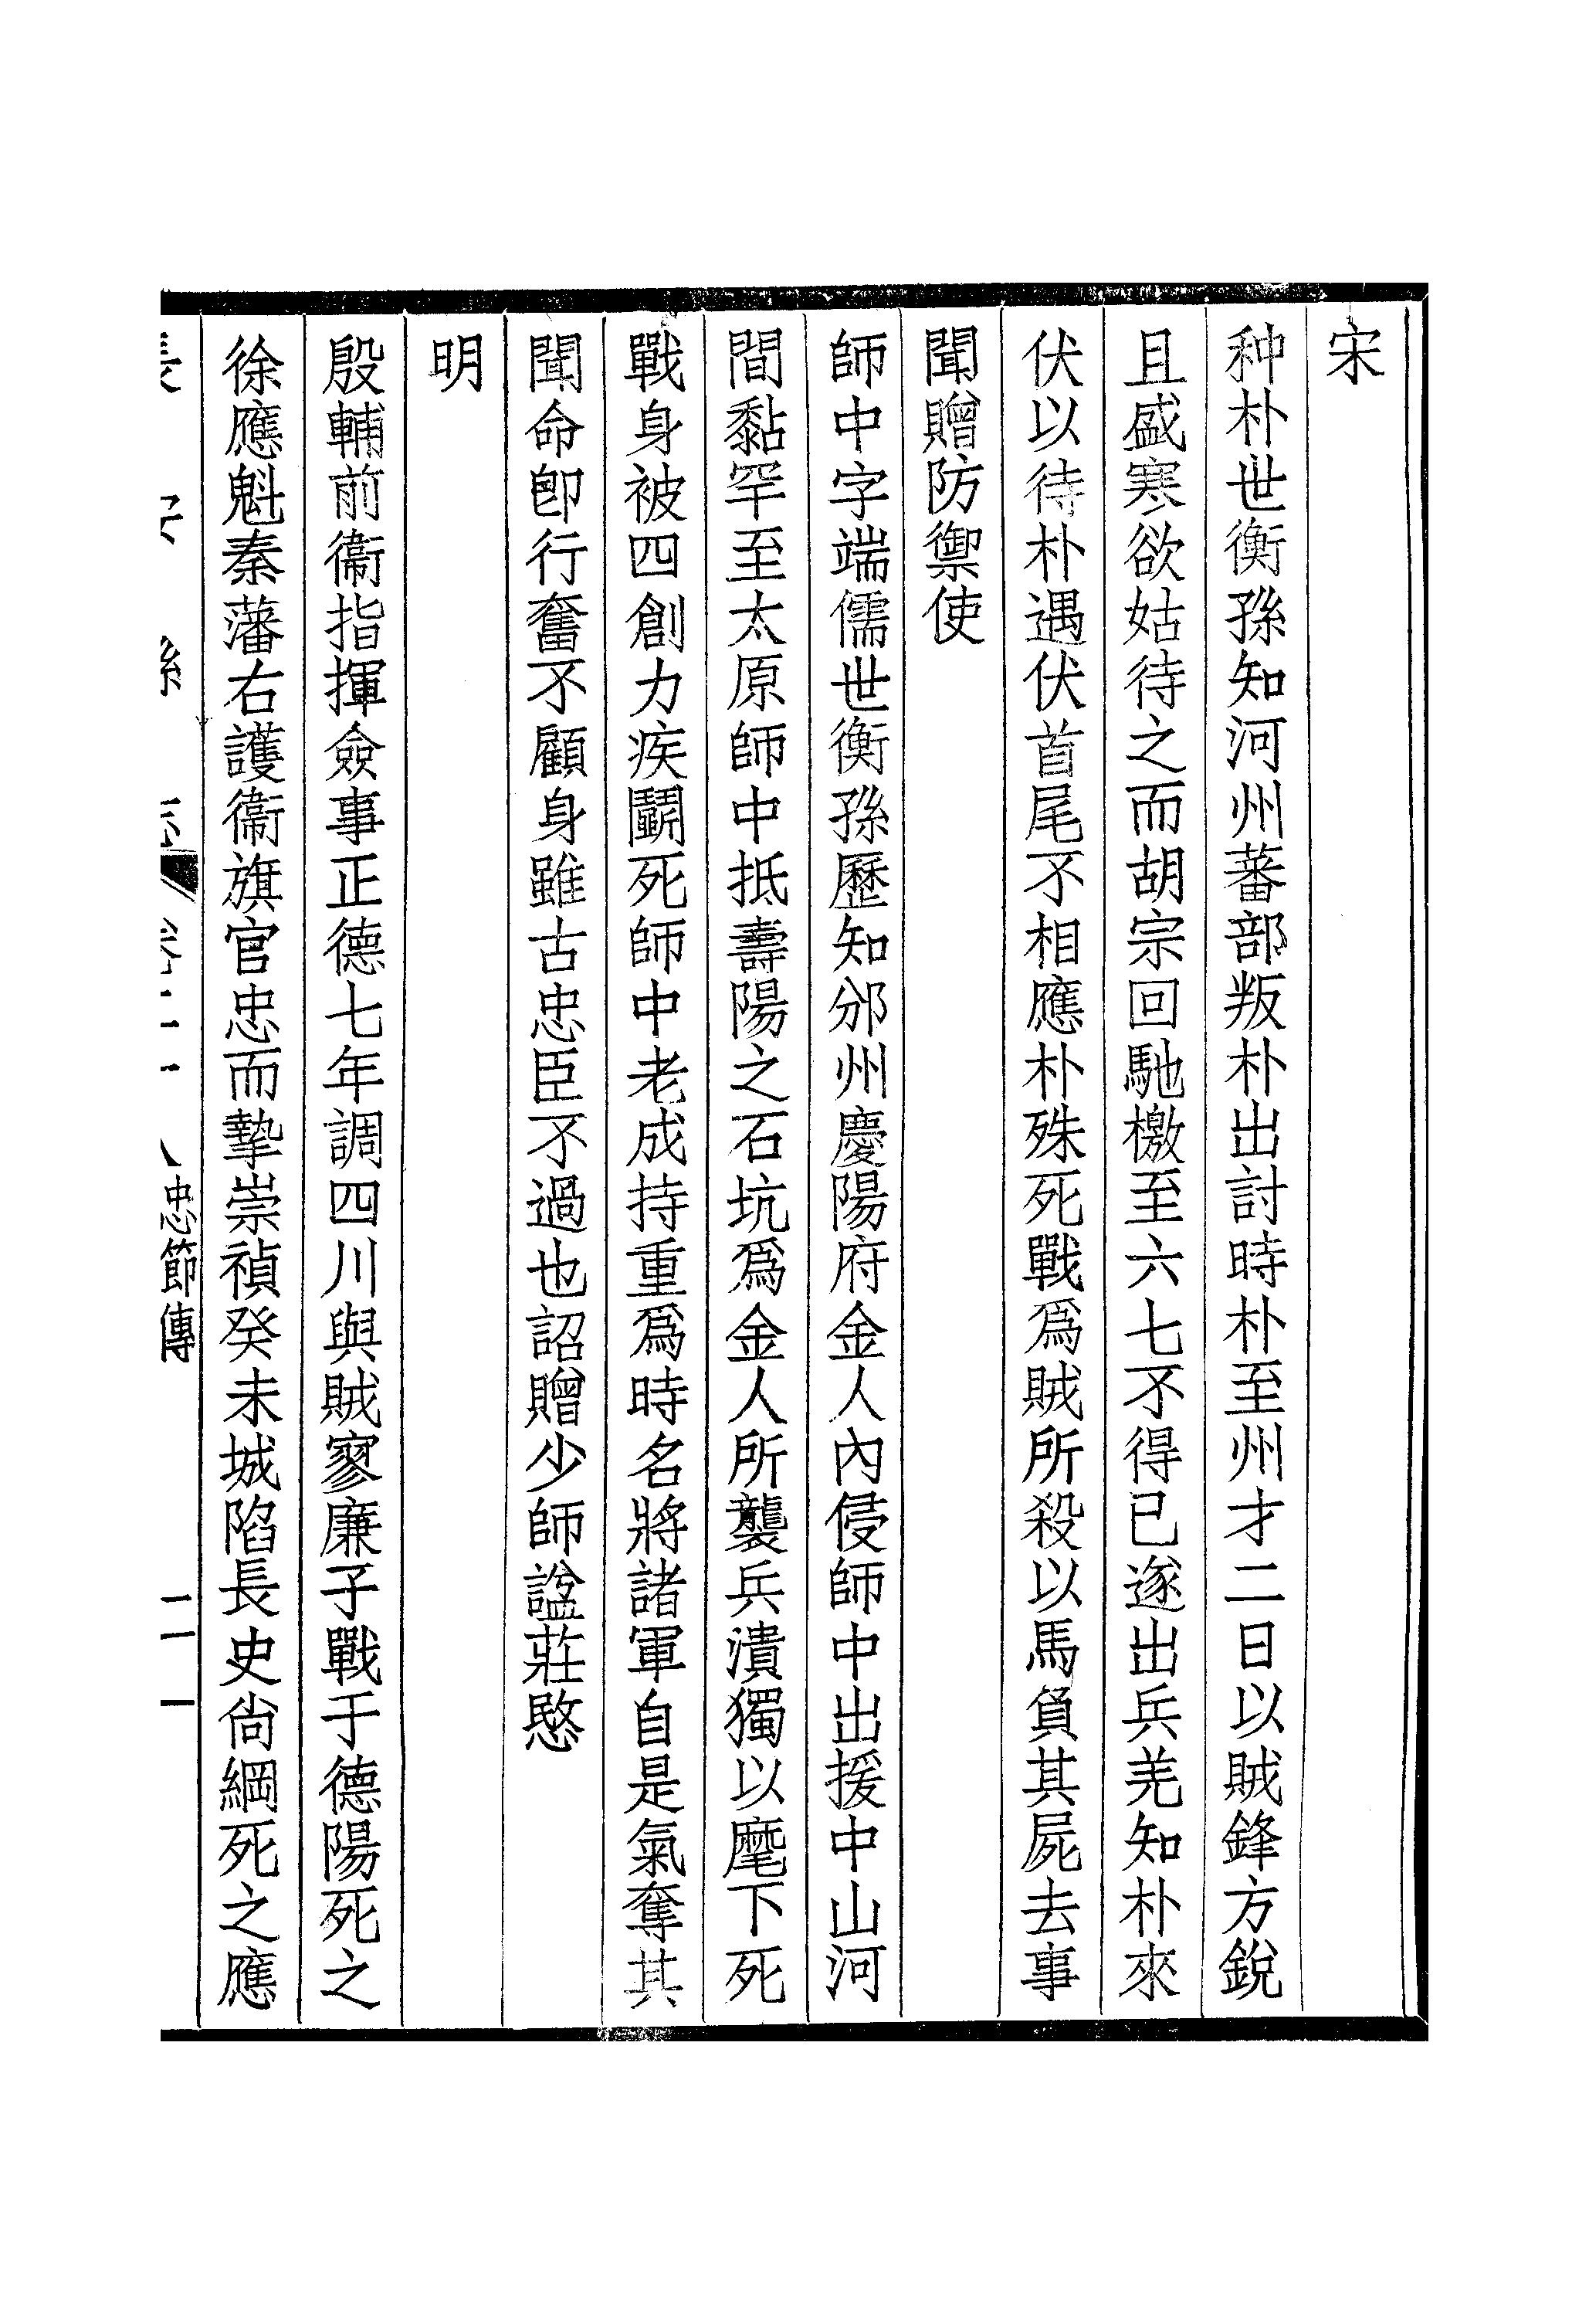 宋
种朴世衡孫知河州蕃部叛朴出討時朴至州才二日以賊鋒方銳
且盛寒欲姑待之而胡宗回馳檄至六七不得已遂出兵羌知朴來
伏以待朴遇伏首尾不相應朴殊死戰爲賊所殺以馬負其屍去事
聞贈防禦使
師中字端儒世衡孫歷知邠州慶陽府金人內侵師中出援中山河
間黏罕至太原師中抵壽陽之石坑爲金人所襲兵潰獨以麾下死
戰身被四創力疾鬭死師中老成持重爲時名將諸軍自是氣奪其
聞命卽行奮不顧身雖古忠臣不過也詔贈少師諡莊愍
明
殷輔前衞指揮僉事正德七年調四川與賊寥廉子戰于德陽死之
徐應魁秦藩右護衞旗官忠而摯崇禎癸未城陷長史尙綱死之應
長安縣志 卷二十八 忠節傳 二一